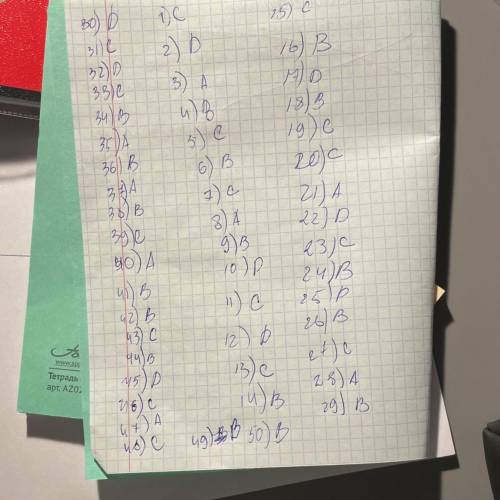 1) C
2) D
3) A
4) B
5) C
6) B
7) C
8) A
9) B
10) D
11) C
12) D
13) C
14) B
15) C
16) B
17) D
18) B
19) C
20) C
21) A
22) D
23) C
24) B
25) D
26) B
27) C
28) A
29) B
30) D
31) C
32) D
33) C
34) B
35) A
36) B
37) A
38) B
39) C
40) A
41) B
42) B
43) C
44) B
45) D
46) C
47) A
48) C
49) B
50) B
Тетрадь